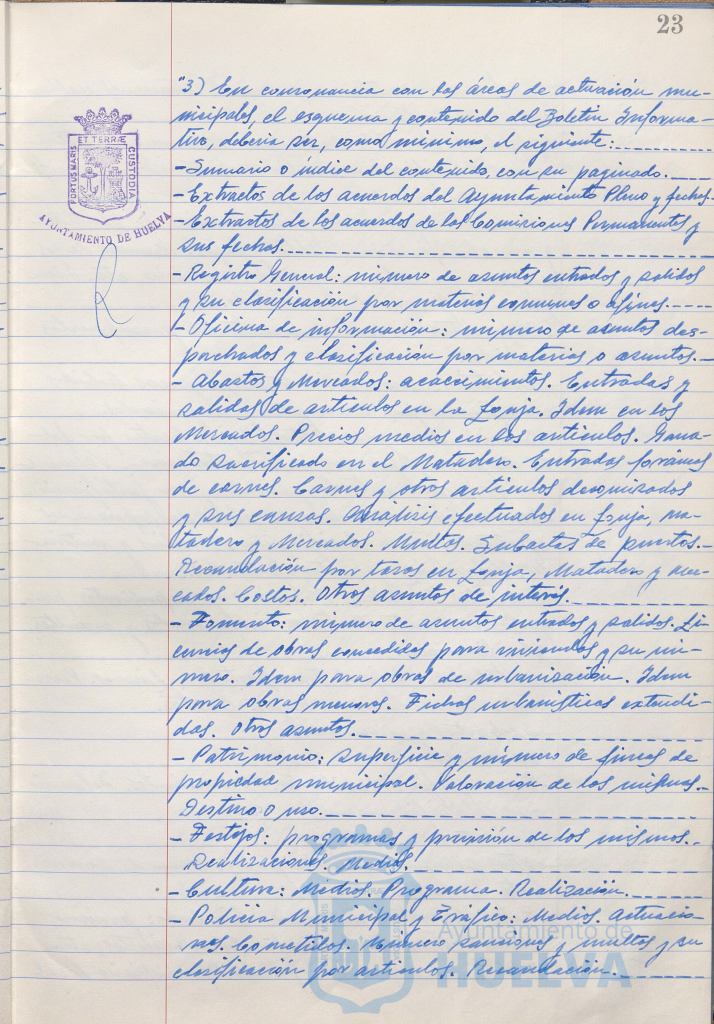 23
PORTUS MARIS
ET TERRÆ
CUSTODIA
AYUNTAMIENTO DE HUELVA
"3) En consonancia con las áreas de actuación mu-
nicipales, el esquema y contenido del Boletín Informa-
tivo, debería ser, como mínimo, el siguiente:
- Sumario o índice del contenido, con su paginado.
- Extractos de los acuerdos del Ayuntamiento Pleno y fechas.
- Extractos de los acuerdos de las Comisiones Permanentes y
sus fechas.
- Registro General: número de asuntos entrados y salidos
y su clasificación por materias comunes o afines.
- Oficina de información: número de asuntos des-
pachados y clasificación por materias o asuntos.
- Abastos y Mercados: acaecimientos. Entradas y
salidas de artículos en la Lonja. Idem en los
Mercados. Precios medios en los artículos. Gana-
do sacrificado en el Matadero. Entradas foráneas
de carnes. Carnes y otros artículos decomisados
y sus causas. Análisis efectuados en Lonja, Ma-
tadero y Mercados. Multas. Subastas de puestos.
Recaudación por tasas en Lonja, Matadero y Mer-
cados. Costos. Otros asuntos de interés.
- Fomento: número de asuntos entrados y salidos. Li-
cencias de obras concedidas para viviendas y su nú-
mero. Idem para obras de urbanización. Idem
para obras menores. Fichas urbanísticas extendi-
das. Otros asuntos.
- Patrimonio: superficie y número de fincas de
propiedad municipal. Valoración de las mismas.
Destino o uso.
- Festejos: programas y previsión de los mismos.
Realizaciones. Medios.
- Cultura: Medios. Programa. Realización.
- Policía Municipal y Tráfico: Medios. Actuacio-
nes. Cometidos. Número sanciones y multas y su
clasificación por artículos. Recaudación.
Ayuntamiento de
HUELVA